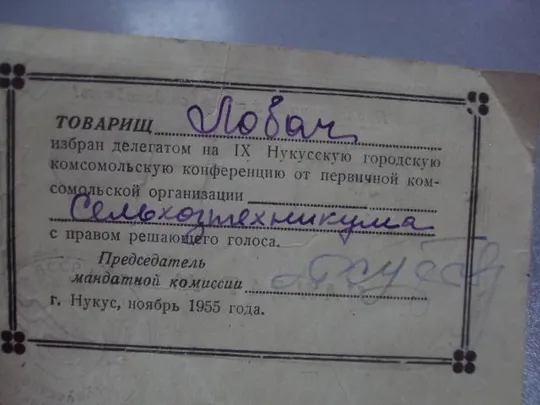 ТОВАРИЩ Лобач
избран делегатом на IX Нукусскую городскую
комсомольскую конференцию от первичной ком-
сомольской организации
Сельхозтехникума
с правом решающего голоса.
Председатель
мандатной комиссии
г. Нукус, ноябрь 1955 года.